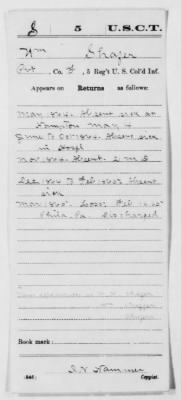 S 5 U.S.C.T.
Wm Shafer
Pvt, Co. F, 5 Reg't U. S. Col'd Inf.
Appears on Returns as follows:
May 1864. Absent sick at
Hampton May 4
June to Oct 1864. Absent sick
in Hosp'l
Nov. 1864. Absent.
Dec. 1864 to Feb. 1865. Absent
sick
Mar. 1865. Loss: Feb.
Phila. Pa. Discharged
Shafer
Shafer
Book mark:
(546)
Copyist.